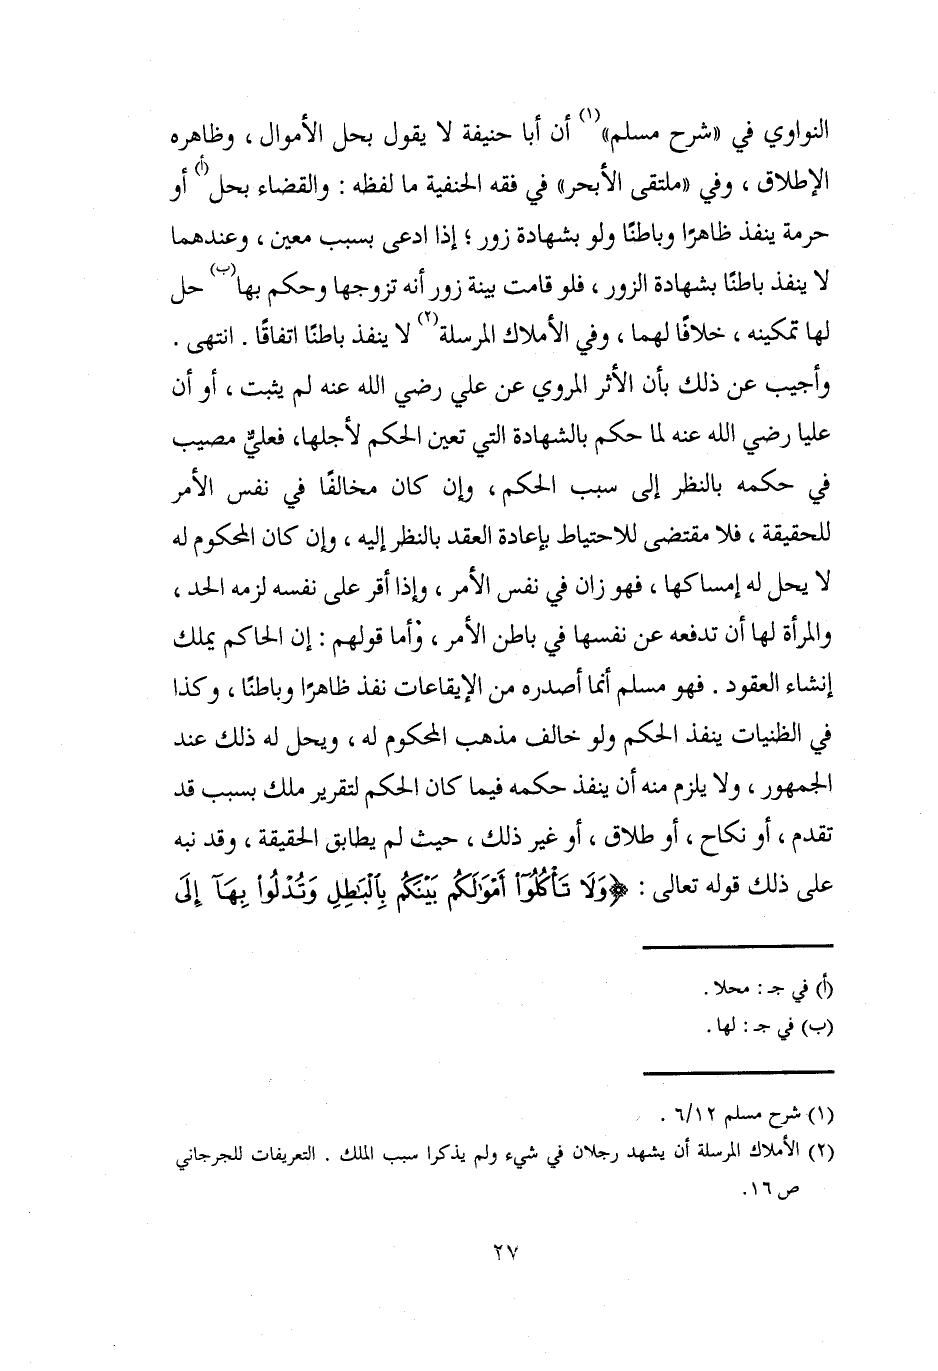 النواوي في «شرح مسلم»(١) أن أبا حنيفة لا يقول بحل الأموال ، وظاهره
الإطلاق ، وفي «ملتقى الأبحر» في فقه الحنفية ما لفظه : والقضاء بحل(أ) أو
حرمة ينفذ ظاهرًا وباطنًا ولو بشهادة زور ؛ إذا ادعى بسبب معين ، وعندهما
لا ينفذ باطنًا بشهادة الزور ، فلو قامت بينة زور أنه تزوجها وحكم بها(ب) حل
لها تمكينه ، خلافًا لهما ، وفي الأملاك المرسلة(٢) لا ينفذ باطنًا اتفاقًا . انتهى .
وأجيب عن ذلك بأن الأثر المروي عن علي رضي الله عنه لم يثبت ، أو أن
عليا رضي الله عنه لما حكم بالشهادة التي تعين الحكم لأجلها، فعليٌّ مصيب
في حكمه بالنظر إلى سبب الحكم ، وإن كان مخالفًا في نفس الأمر
للحقيقة ، فلا مقتضى للاحتياط بإعادة العقد بالنظر إليه ، وإن كان المحكوم له
لا يحل له إمساكها ، فهو زان في نفس الأمر ، وإذا أقر على نفسه لزمه الحد ،
والمرأة لها أن تدفعه عن نفسها في باطن الأمر ، وأما قولهم : إن الحاكم يملك
إنشاء العقود . فهو مسلم أنما أصدره من الإيقاعات نفذ ظاهرًا وباطنًا ، وكذا
في الظنيات ينفذ الحكم ولو خالف مذهب المحكوم له ، ويحل له ذلك عند
الجمهور ، ولا يلزم منه أن ينفذ حكمه فيما كان الحكم لتقرير ملك بسبب قد
تقدم ، أو نكاح ، أو طلاق ، أو غير ذلك ، حيث لم يطابق الحقيقة ، وقد نبه
على ذلك قوله تعالى : ﴿وَلَا تَأْكُلُوٓا۟ أَمْوَٰلَكُم بَيْنَكُم بِٱلْبَٰطِلِ وَتُدْلُوا۟ بِهَآ إِلَى
(أ) في جـ : محلا .
(ب) في جـ : لها .
(١) شرح مسلم ٦/١٢ .
(٢) الأملاك المرسلة أن يشهد رجلان في شيء ولم يذكرا سبب الملك . التعريفات للجرجاني
ص ١٦.
٢٧